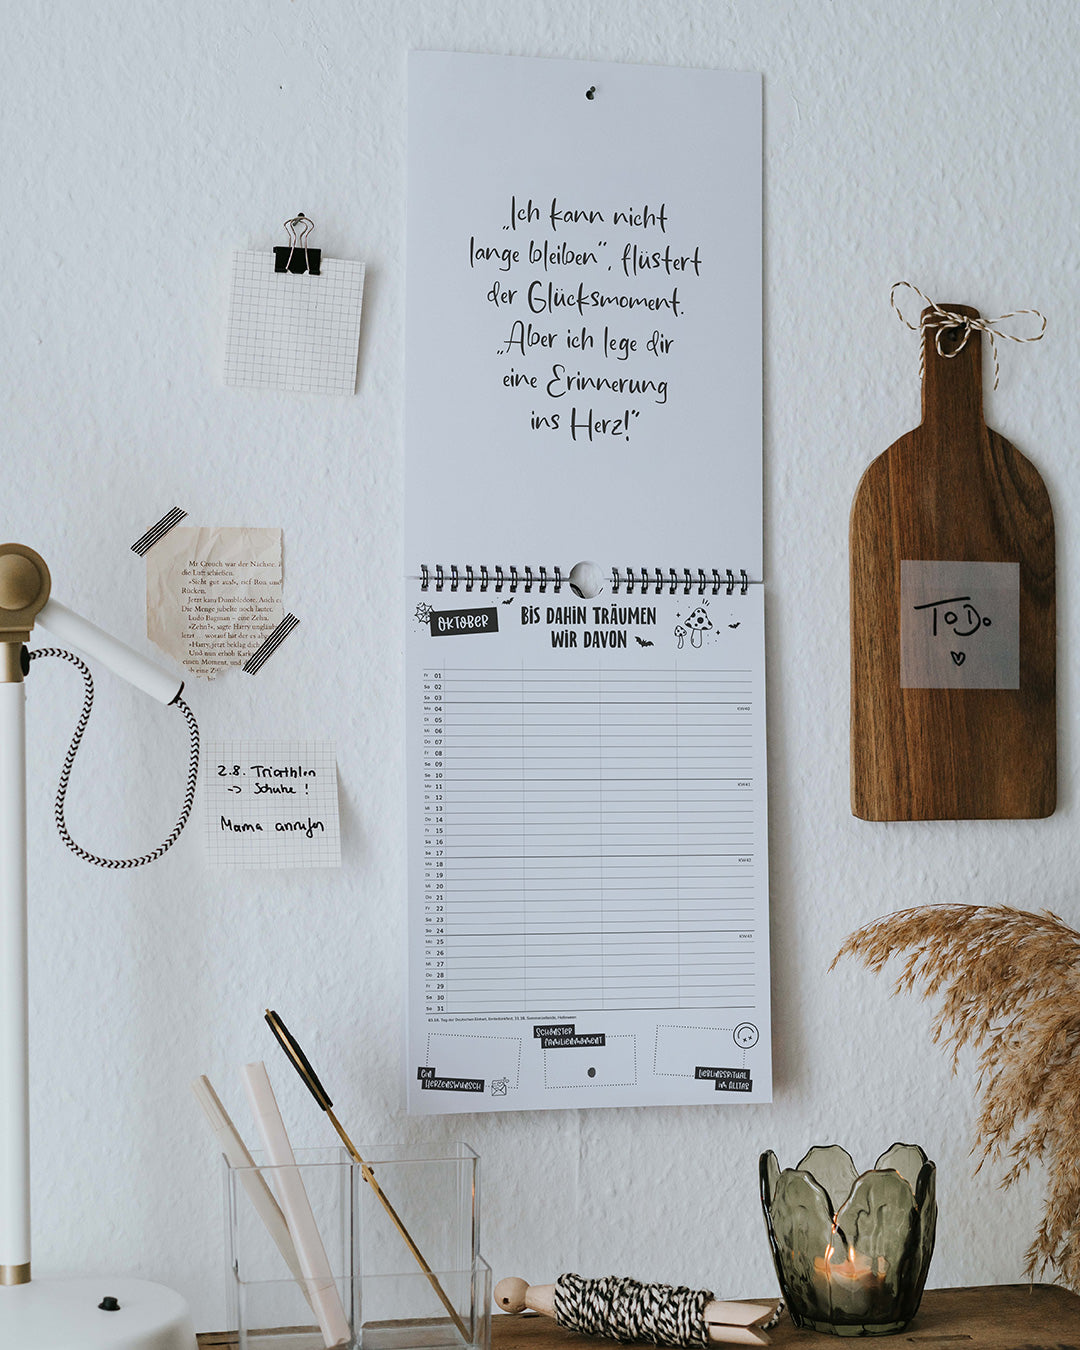 „Ich kann nicht
lange bleiben“, flüstert
der Glücksmoment.
„Aber ich lege dir
eine Erinnerung
ins Herz!“
Mr Crouch war der Nächste,
die Luft schießen.
»Sicht gut aus!«, rief Ron und
Rücken.
Jetzt kam Dumbledore. Auch er
Die Menge jubelte noch lauter.
Ludo Bagman – eine Zehn.
»Zehn?«, sagte Harry ungläubig
letzt ... worauf hat der es
»Harry, jetzt beklag dich
Und nun erhob Kark
einen Moment, und
2.8. Triathlon
-> Schuhe !
Mama anrufen
OKTOBER
BIS DAHIN TRÄUMEN
WIR DAVON
Fr 01
Sa 02
So 03
Mo 04 KW40
Di 05
Mi 06
Do 07
Fr 08
Sa 09
So 10
Mo 11 KW41
Di 12
Mi 13
Do 14
Fr 15
Sa 16
So 17
Mo 18 KW42
Di 19
Mi 20
Do 21
Fr 22
Sa 23
So 24
Mo 25 KW43
Di 26
Mi 27
Do 28
Fr 29
Sa 30
So 31
03.10. Tag der Deutschen Einheit, Erntedankfest, 31.10. Sommerzeitende, Halloween
EIN
HERZENSWUNSCH
SCHÖNSTER
FAMILIENMOMENT
LIEBLINGSRITUAL
IM ALLTAG
ToDo